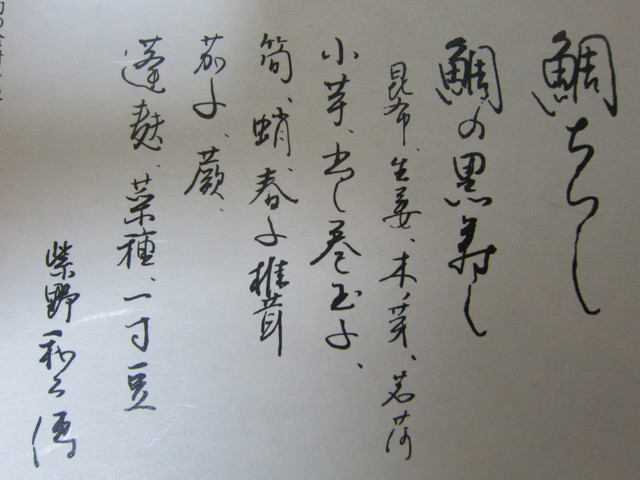 鯛ちらし
鯛の黒寿し
昆布、生姜、木ノ芽、茗荷
小芋、出し巻玉子、
筍、蛸、春子椎茸
茄子、蕨、
蓬麩、菜種、一寸豆
紫野和久傳